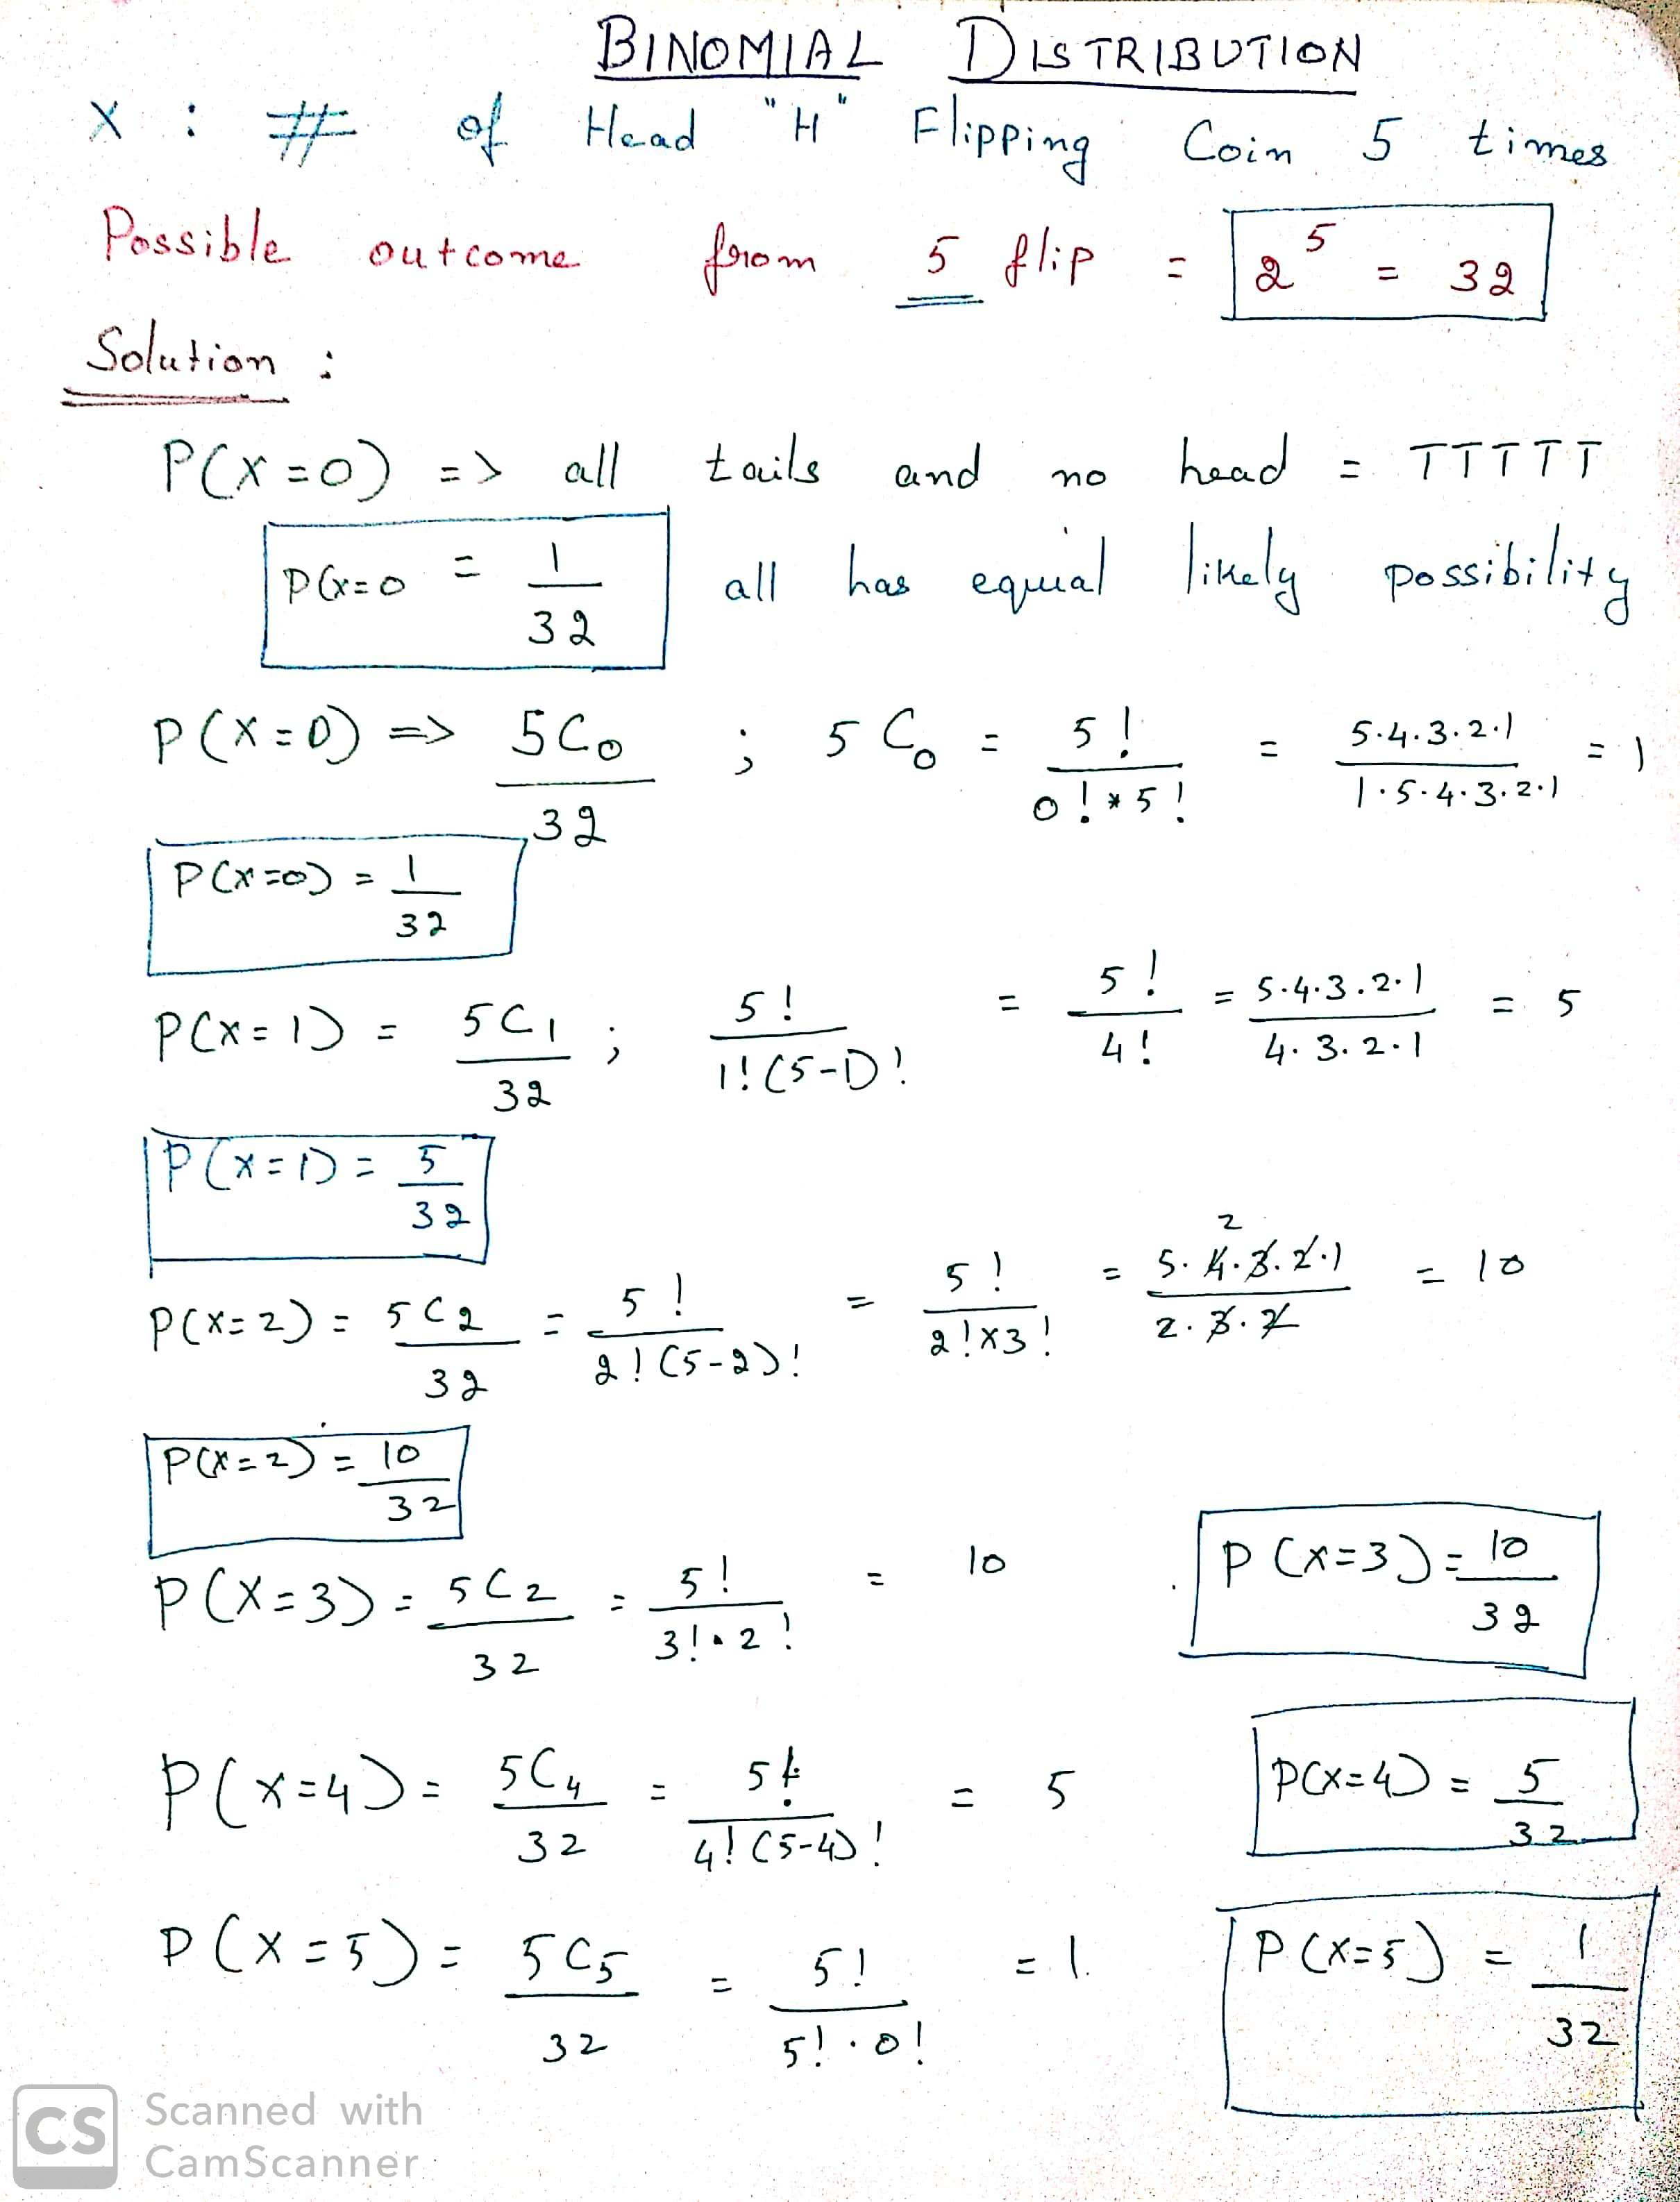 BINOMIAL DISTRIBUTION
X : # of Head "H" Flipping Coin 5 times
Possible outcome from 5 flip = 2^5 = 32
Solution :
P(X=0) => all tails and no head = TTTTT
P(X=0 = 1/32 all has equal likely possibility
P(X=0) => 5C0/32 ; 5C0 = 5!/0!*5! = 5.4.3.2.1/1.5.4.3.2.1 = 1
P(X=0) = 1/32
P(X=1) = 5C1/32 ; 5!/1!(5-1)! = 5!/4! = 5.4.3.2.1/4.3.2.1 = 5
P(X=1) = 5/32
P(X=2) = 5C2/32 = 5!/2!(5-2)! = 5!/2!x3! = 5.4.3.2.1/2.3.2 = 10
P(X=2) = 10/32
P(X=3) = 5C2/32 = 5!/3!.2! = 10 P(X=3) = 10/32
P(X=4) = 5C4/32 = 5!/4!(5-4)! = 5 P(X=4) = 5/32
P(X=5) = 5C5/32 = 5!/5!.0! = 1. P(X=5) = 1/32
CS Scanned with
CamScanner